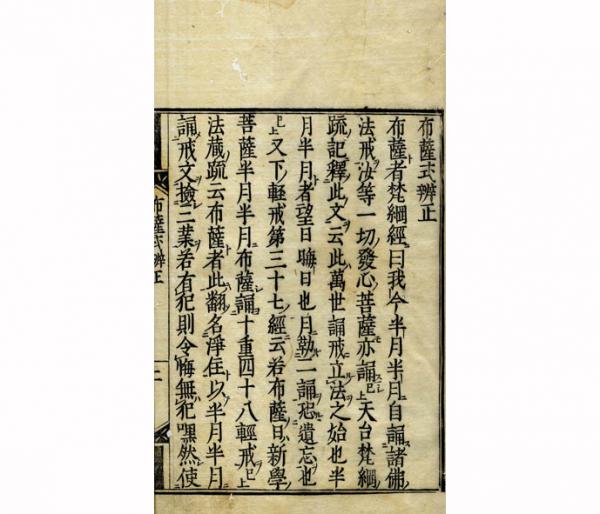 布薩式辨正
布薩者梵綱經曰我今半月半月自誦諸佛
法戒汝等一切發心菩薩亦誦已上天台梵綱
疏記釋此文云此萬世誦戒立法之始也半
月半月者望日晦日也月勒二誦恐遺忘也
已上又下輕戒第三十七經云若布薩日新學
菩薩半月半月布薩誦十重四十八輕戒已上
法蔵疏云布薩者此翻名淨住以半月半月
誦戒文撿三業若有犯則令悔無犯嘿然使
布薩式辨正